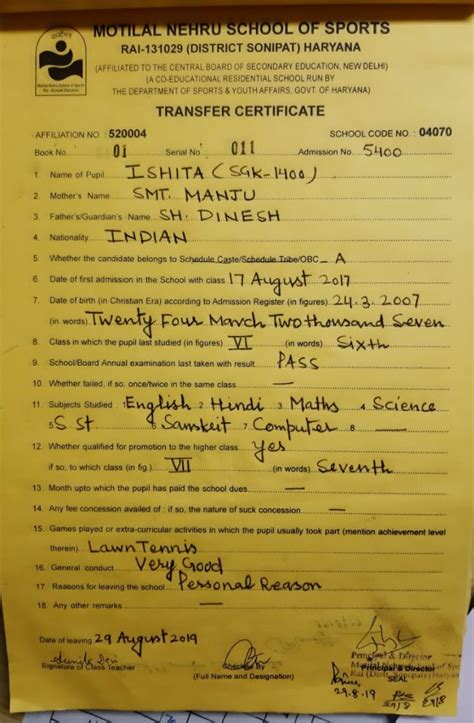 MOTILAL NEHRU SCHOOL OF SPORTS
RAI-131029 (DISTRICT SONIPAT) HARYANA
(AFFILIATED TO THE CENTRAL BOARD OF SECONDARY EDUCATION, NEW DELHI)
(A CO-EDUCATIONAL RESIDENTIAL SCHOOL RUN BY
THE DEPARTMENT OF SPORTS & YOUTH AFFAIRS, GOVT. OF HARYANA)
TRANSFER CERTIFICATE
AFFILIATION NO. 520004 SCHOOL CODE NO. : 04070
Book No. 01 Serial No. 011 Admission No. 5400
1. Name of Pupil ISHITA (SGK-1400)
2. Mother's Name SMT. MANJU
3. Father's/Guardian's Name SH. DINESH
4. Nationality INDIAN
5. Whether the candidate belongs to Schedule Caste/Schedule Tribe/OBC A
6. Date of first admission in the School with class 17 August 2017
7. Date of birth (in Christian Era) according to Admission Register (in figures) 24.3.2007
(in words) Twenty Four March Two thousand Seven
8. Class in which the pupil last studied (in figures) VI (in words) Sixth
9. School/Board Annual examination last taken with result PASS
10. Whether failed, if so, once/twice in the same class —
11. Subjects Studied : 1 English 2 Hindi 3 Maths 4 Science
5 S St 6 Sanskrit 7 Computer 8 —
12. Whether qualified for promotion to the higher class yes
if so, to which class (in fig.) VII (in words) Seventh
13. Month upto which the pupil has paid the school dues —
14. Any fee concession availed of : if so, the nature of suck concession —
15. Games played or extra-curricular activities in which the pupil usually took part (mention achievement level
therein) Lawn Tennis
16. General conduct Very Good
17. Reasons for leaving the school Personal Reason
18. Any other remarks —
Date of leaving 29 August 2019
Signature of Class Teacher Checked By Principal & Director
(Full Name and Designation) SEAL
29.8.19 29/8 29/8